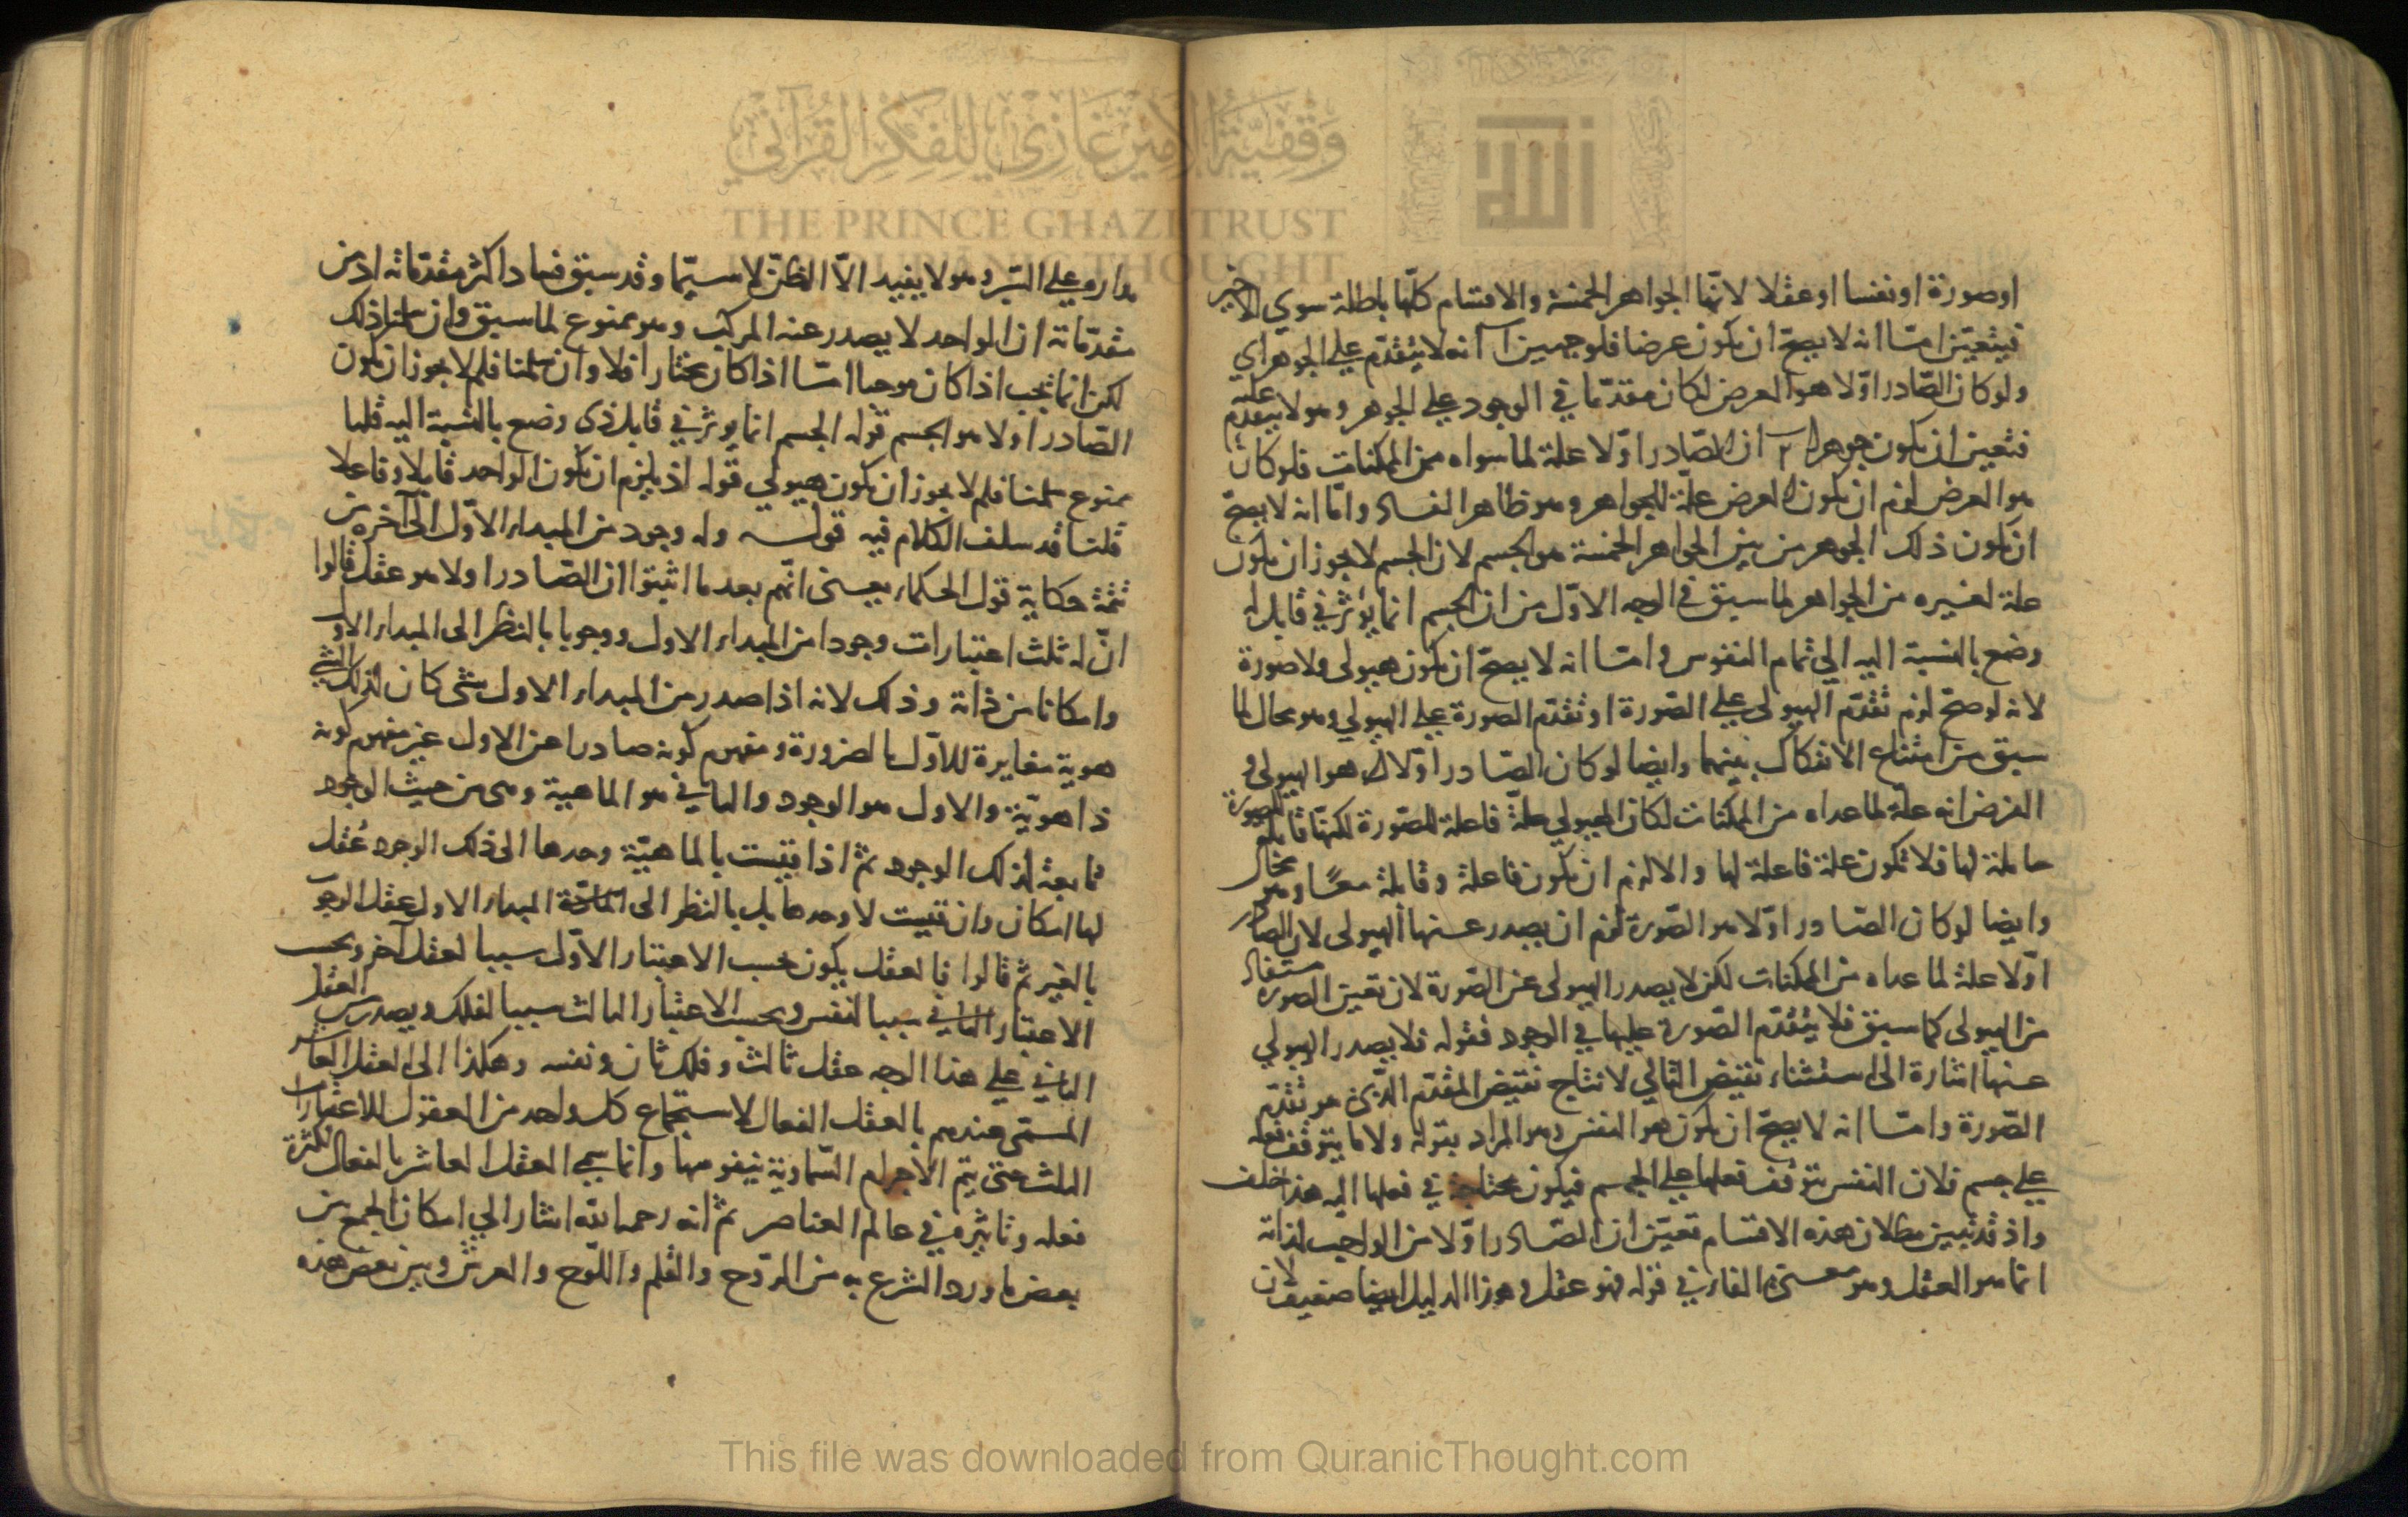 اوصورة اونفسا اوعقلا لانها الجواهر الخمسة والاقسام كلّها باطلة سوي الاخير
فيتعيّن امّا انه لا يصحّ ان يكون عرضا فلوجهين آ انه لا يتقدّم علي الجوهر اي
ولو كان الصّادر اوّلا هو العرض لكان مقدّما في الوجود علي الجوهر وهو لا يتقدم عليه
فتعين ان يكون جوهرا ٢ ان الصّادر اوّلا علة لما سواه من الممكنات فلو كان
هو العرض لزم ان يكون العرض علّة للجواهر وهو ظاهر الفساد وامّا انه لا يصحّ
ان يكون ذلك الجوهر من بين الجواهر الخمسة هو الجسم لان الجسم لا يجوز ان يكون
علة لغيره من الجواهر لما سبق في الوجه الاوّل من ان الجسم انما يؤثر في قابل له
وضع بالنسبة اليه الي تمام النفوس وامّا انه لا يصحّ ان يكون هيولى ولا صورة
لانه لو صحّ لزم تقدّم الهيولى علي الصّورة او تقدّم الصورة علي الهيولي وهو محال لما
سبق من امتناع الانفكاك بينهما وايضا لو كان الصّادر اوّلا هو الهيولى و
الفرض انه علة لما عداه من الممكنات لكان الهيولي علّة فاعلة للصّورة لكنها قابلة للصورة
حاملة لها فلا تكون علة فاعلة لها والا لزم ان يكون فاعلة وقابلة معًا وهو محال
وايضا لو كان الصّادر اوّلا هو الصّورة لزم ان يصدر عنها الهيولى لان الصادر
اوّلا علة لما عداه من الممكنات لكن لا يصدر الهيولى عن الصّورة لان تعين الصورة مستفاد
من الهيولى كما سبق فلا يتقدّم الصّورة عليها في الوجود فقوله فلا يصدر الهيولي
عنها اشارة الى استثناء نقيض التالي لانتاج نقيض المقدّم الذي هو تقدّم
الصّورة وامّا انه لا يصحّ ان يكون هو النفس وهو المراد بقوله ولا ما يتوقف فعله
علي جسم فلان النفس يتوقف فعلها علي الجسم فيكون محتاجة في فعلها اليه هذا خلف
واذ قد تبين بطلان هذه الاقسام تعيّن ان الصّادر اوّلا من الواجب لذاته
انما هو العقل وهو معنى الفاء في قوله فهو عقل وهذا الدليل ايضا ضعيف لان
مداره علي السّبر وهو لا يفيد الّا الظنّ لا سيّما وقد سبق فساد اكثر مقدّماته اذ من
مقدّماته ان الواحد لا يصدر عنه المركب وهو ممنوع لما سبق وان سلمنا ذلك
لكن انما يجب اذا كان موجبا امّا اذا كان مختارا فلا وان سلمنا فلم لا يجوز ان يكون
الصّادر اولا هو الجسم قوله الجسم انما يوثر في قابل ذى وضع بالنسبة اليه قلنا
ممنوع سلمنا فلم لا يجوز ان يكون هيولي قوله اذ يلزم ان يكون الواحد قابلا وفاعلا
قلنا قد سلف الكلام فيه قولـه وله وجود من المبداء الاوّل الى آخره من
تتمة حكاية قول الحكماء يعني انّهم بعد ما اثبتوا ان الصّادر اولا هو عقل قالوا
انّ له ثلث اعتبارات وجودا من المبداء الاول ووجوبا بالنظر الى المبداء الاول
وامكانا من ذاته وذلك لانه اذا صدر من المبداء الاول شئ كان لذلك الشئ
هوية مغايرة للاوّل بالضرورة ومفهوم كونه صادرا عن الاول غير مفهوم كونه
ذا هويّة والاول هو الوجود والثاني هو الماهية وهى من حيث الوجود
تابعة لذلك الوجود ثم اذا قيست بالماهيّة وحدها الى ذلك الوجود عُقل
لها امكان وان قيست لا وحدها بل بالنظر الى المبداء الاول عقل الوجوب
بالغير ثم قالوا فالعقل يكون بحسب الاعتبار الاوّل سببا لعقل آخر وبحسب
الاعتبار الثاني سببا لنفس وبحسب الاعتبار الثالث سببا لفلك ويصدر من العقل
الثاني علي هذا الوجه عقل ثالث وفلك ثان ونفسه وهكذا الى العقل العاشر
المسمّى عندهم بالعقل الفعال لاستجماع كل واحد من العقول للاعتبارات
الثلث حتى يتم الاجرام السّماوية بنفوسها وانما سمي العقل العاشر بالفعال لكثرة
فعله وتاثيره في عالم العناصر ثم انه رحمه الله اشار الي امكان الجمع بين
بعض ما ورد الشرع به من الرّوح والقلم واللّوح والعرش وبين بعض هذه
وقفية الأمير غازي للفكر القرآني
THE PRINCE GHAZI TRUST
THOUGHT
الله
This file was downloaded from QuranicThought.com